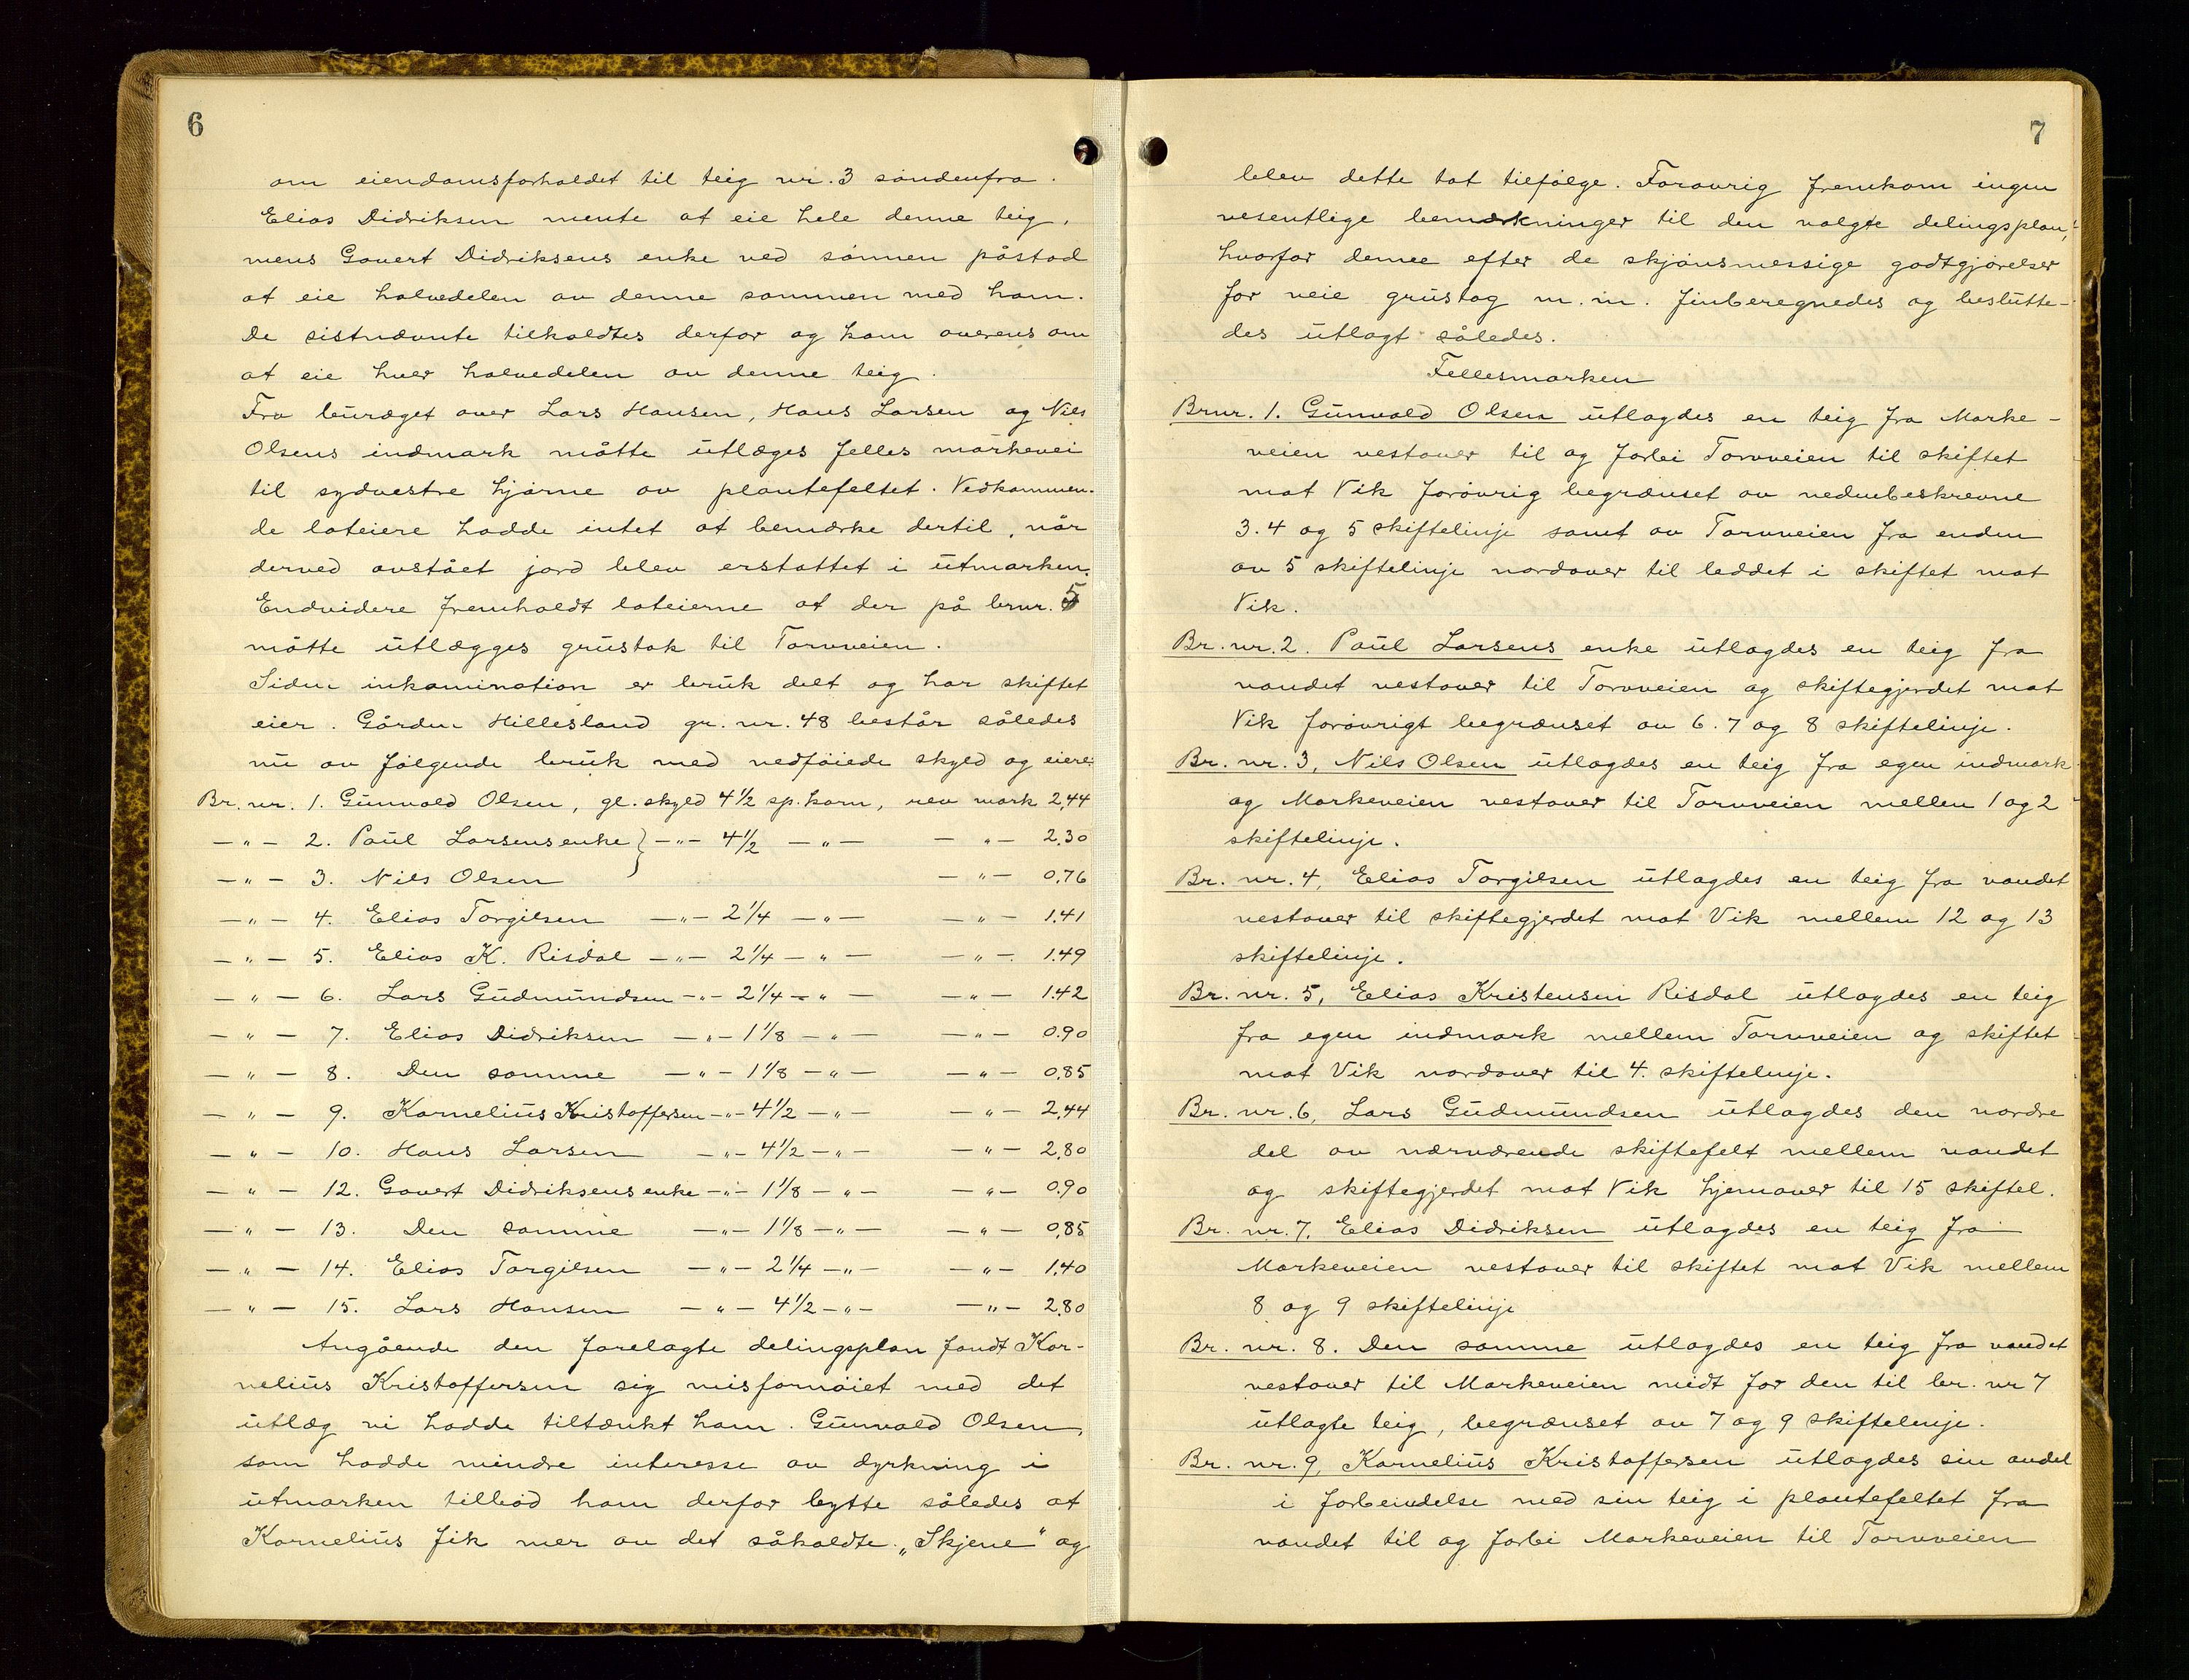 6
om eiendomsforholdet til teig nr. 3 söndenfra.
Elias Didriksen mente at eie hele denne teig,
mens Govert Didriksens enke ved sönnen påstod
at eie halvedelen av denne sammen med ham.
De sistnævnte tilkaldtes derfor og kom overens om
at eie hver halvedelen av denne teig.
Fra buræget over Lars Hansen, Hans Larsen og Nils
Olsens indmark måtte utlæges felles markevei
til sydvestre hjörne av plantefeltet. Vedkommen-
de loteiere hadde intet at bemærke dertil, når
derved avstået jord blev erstattet i utmarken.
Endvidere fremholdt loteierne at der på brnr. 5
måtte utlægges grustak til Torvveien.
Siden inkamination er bruk delt og har skiftet
eier. Gården Hillesland gr. nr. 48 består således
nu av fölgende bruk med vedföiede skyld og eiere:
Br. nr. 1. Gunvald Olsen, gl. skyld 4½ sp. korn, rev mark 2,44
—„— 2. Paul Larsens enke } —„— 4½ —„— —„— 2.30
—„— 3. Nils Olsen —„— 0,76
—„— 4. Elias Torgilsen —„— 2¼ —„— —„— 1.41
—„— 5. Elias K. Risdal —„— 2¼ —„— —„— 1.49
—„— 6. Lars Gudmundsen —„— 2¼ —„— —„— 1.42
—„— 7. Elias Didriksen —„— 1⅛ —„— —„— 0.90
—„— 8. Den samme —„— 1⅛ —„— —„— 0,85
—„— 9. Kornelius Kristoffersen —„— 4½ —„— —„— 2,44
—„— 10. Hans Larsen —„— 4½ —„— —„— 2,80
—„— 12. Govert Didriksens enke —„— 1⅛ —„— —„— 0.90
—„— 13. Den samme —„— 1⅛ —„— —„— 0,85
—„— 14. Elias Torgilsen —„— 2¼ —„— —„— 1,40
—„— 15. Lars Hansen —„— 4½ —„— —„— 2.80
Angående den forelagte delingsplan fandt Kor-
nelius Kristoffersen sig misfornöiet med det
utlæg vi hadde tiltænkt ham. Gunvald Olsen,
som hadde mindre interesse av dyrkning i
utmarken tilböd ham derfor bytte således at
Kornelius fik mer av det såkaldte „Skjene" og
7
blev dette tat tilfölge. Forövrig fremkom ingen
vesentlige bemærkninger til den valgte delingsplan,
hvorfor denne efter de skjönsmessige godtgjörelser
for veie grustag m.m. finberegnedes og beslutte-
des utlagt således.
Fellesmarken
Brnr. 1. Gunvald Olsen utlagdes en teig fra Marke-
veien vestover til og forbi Torvveien til skiftet
mot Vik forövrig begrænset av nedenbeskrevne
3. 4 og 5 skiftelinje samt av Torvveien fra enden
av 5 skiftelinje nordover til leddet i skiftet mot
Vik.
Br. nr. 2. Paul Larsens enke utlagdes en teig fra
vandet vestover til Torvveien og skiftegjerdet mot
Vik forövrigt begrænset av 6. 7 og 8 skiftelinje.
Br. nr. 3, Nils Olsen utlagdes en teig fra egen indmark
og Markeveien vestover til Torvveien mellen 1 og 2
skiftelinje.
Br. nr. 4, Elias Torgilsen utlagdes en teig fra vandet
vestover til skiftegjerdet mot Vik mellem 12 og 13
skiftelinje.
Br. nr. 5, Elias Kristensen Risdal utlagdes en teig
fra egen indmark mellem Torvveien og skiftet
mot Vik nordover til 4. skiftelinje.
Br. nr. 6, Lars Gudmundsen utlagdes den nordre
del av nærværende skiftefelt mellem vandet
og skiftegjerdet mot Vik hjemover til 15 skiftel.
Br. nr. 7, Elias Didriksen utlagdes en teig fra
Markeveien vestover til skiftet mot Vik mellem
8 og 9 skiftelinje
Br. nr. 8. Den samme utlagdes en teig fra vandet
vestover til Markeveien midt for den til br. nr 7
utlagte teig, begrænset av 7 og 9 skiftelinje.
Br. nr. 9, Kornelius Kristoffersen utlagdes sin andel
i forbindelse med sin teig i plantefeltet fra
vandet til og forbi Markeveien til Torvveien